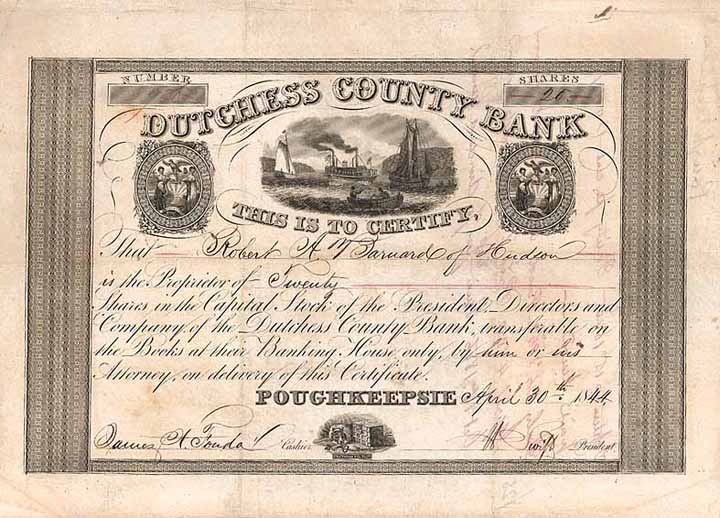 NUMBER
SHARES
20
DUTCHESS COUNTY BANK
THIS IS TO CERTIFY,
That Robert A Barnard of Hudson
is the Proprietor of Twenty
Shares in the Capital Stock of the President, Directors and
Company, of the Dutchess County Bank, transferable on
the Books at their Banking House only, by him or his
Attorney, on delivery of this Certificate.
POUGHKEEPSIE April 30th. 1844
James A. Fonda Cashier. Swift President.